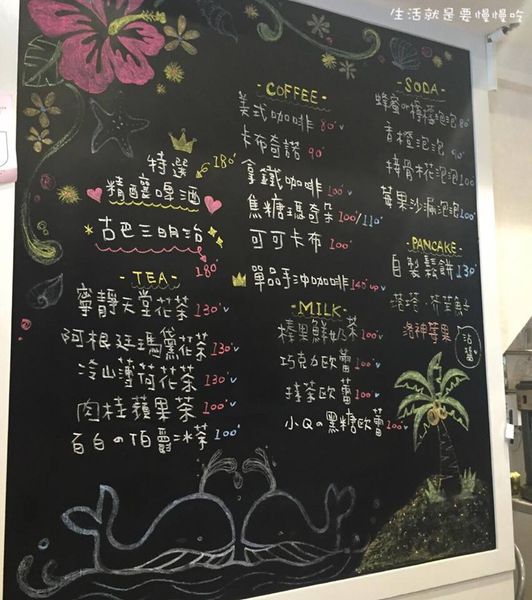 生活就是要慢慢吃
-COFFEE-
美式咖啡 80'v
卡布奇諾 90'
拿鐵咖啡 100'v
焦糖瑪奇朵 100'/110'
可可卡布 100'v
單品手沖咖啡 140'up v
-SODA-
蜂蜜の檸檬泡泡 80'
香橙泡泡 90'
接骨木花泡泡 100
莓果沙漏泡泡 100'
特選
精釀啤酒 180'
古巴三明治
180'
-TEA-
寧靜天堂花茶 130'v
阿根廷瑪黛花茶 130'v
冷山薄荷花茶 130'v
肉桂蘋果茶 100'v
百白の伯爵冰茶 100'
-MILK-
榛果鮮奶茶 100'v
巧克力歐蕾 100'v
抹茶歐蕾 100'v
小Qの黑糖歐蕾 100'v
-PANCAKE-
自製鬆餅 130'
洛神莓果
沾醬